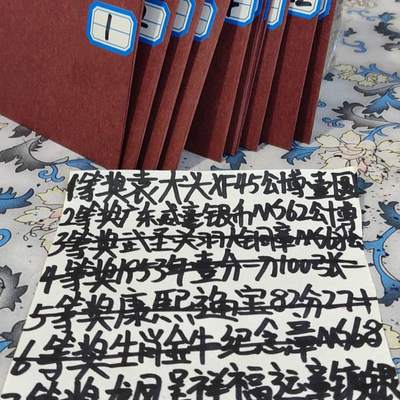 1
1等奖袁大头XF45公博壹圆
2等奖广东咸丰银币MS62公博
3等奖武圣关羽大铜章MS69公
4等奖1953年壹分一刀100张一
5等奖康熙通宝82分27十
6等奖生肖金牛纪念章MS68
7等奖龙凤呈祥福运章镀银